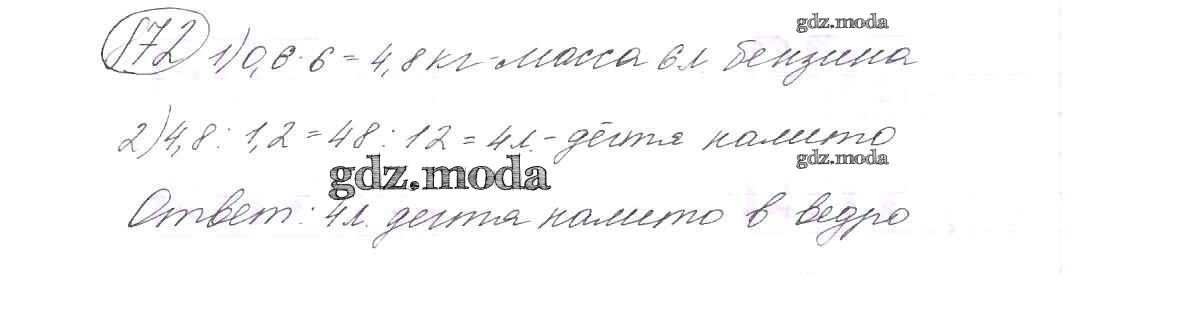 gdz.moda
172 1) 0,8 · 6 = 4,8 кг - масса 6 л бензина
2) 4,8 : 1,2 = 48 : 12 = 4 л. - дёгтя налито
gdz.moda
gdz.moda
Ответ: 4 л. дегтя налито в ведро